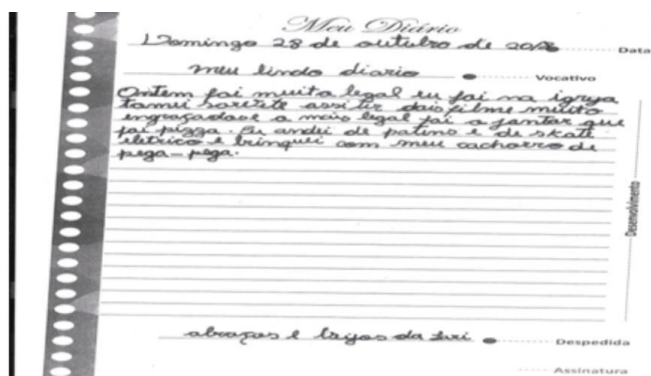 Meu Diário
Domingo 28 de outubro de 2018
Data
meu lindo diario
Vocativo
Ontem foi muito legal eu foi na igreja
tomei sorvete assitir dois filme muito
engraçadose a mais legal foi a jantar que
foi pizza. Eu andei de patins e de skate
eletrico e brinquei com meu cachorro de
pega-pega.
Desenvolvimento
abraços e beijos da
Despedida
Assinatura